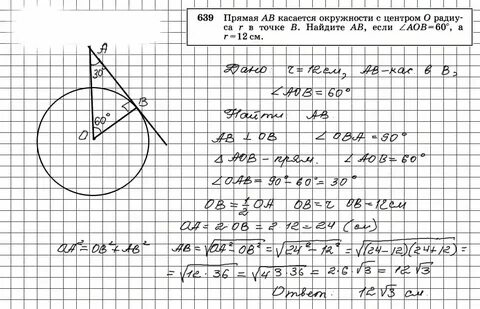 639 Прямая AB касается окружности с центром O радиу-
са r в точке B. Найдите AB, если ∠AOB=60°, а
r=12 см.
A
30°
B
60°
O
Дано r=12см, AB-кас в B,
∠AOB=60°
Найти AB
AB ⊥ OB ∠OBA=90°
△AOB-прям. ∠AOB=60°
∠OAB=90°-60°=30°
OB=1/2 OA OB=r OB=12см
OA=2·OB=2·12=24 (см)
OA²=OB²+AB² AB=√OA²-OB²=√24²-12²=√(24-12)(24+12)=
=√12·36=√4·3·36=2·6·√3=12√3
Ответ. 12√3 см.